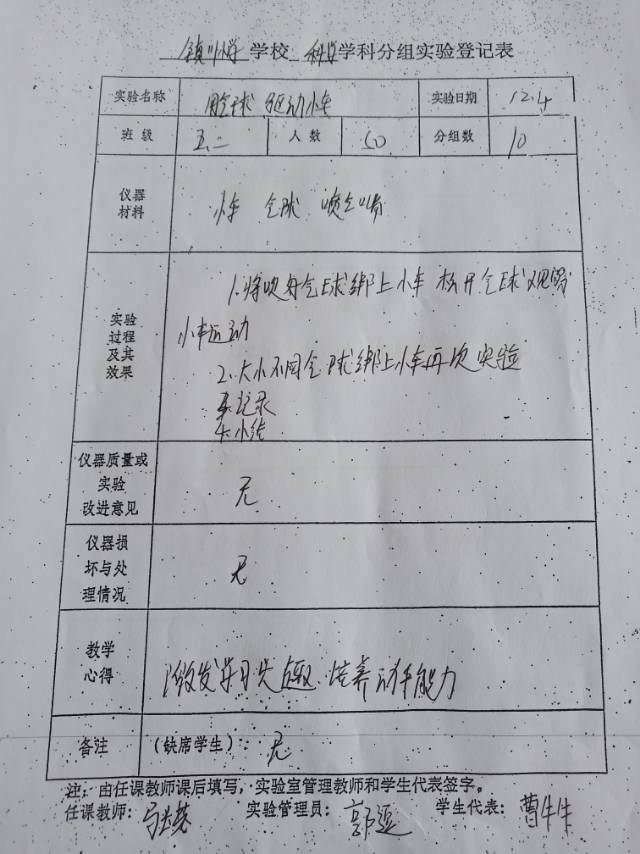 镇川小学 学校 科学 学科分组实验登记表
实验名称 用气球驱动小车 实验日期 12.4
班级 五.二 人数 50 分组数 10
仪器材料 小车 气球 喷气嘴
实验过程及其效果
1.将吹好气球绑上小车 松开气球观察
小车运动
2.大小不同气球绑上小车再次实验
3.记录
4.小结
仪器质量或实验改进意见 无
仪器损坏与处理情况 无
教学心得 激发学习兴趣.培养动手能力
备注 (缺席学生): 无
注:由任课教师课后填写,实验室管理教师和学生代表签字。
任课教师: 实验管理员: 郭 学生代表: 曹牛牛